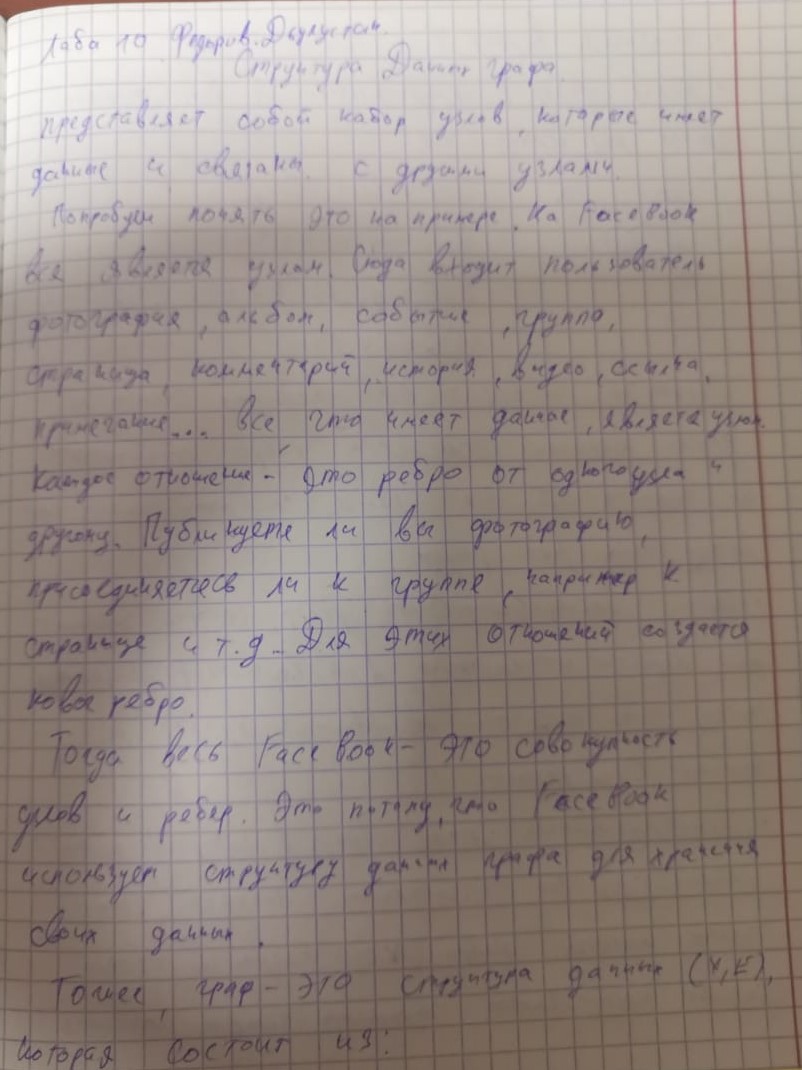 Лаба 10 Федоров.
Структура Данных графа.
представляет собой набор узлов, которые имеет
данные и связаны с другими узлами.
Попробуем понять это на примере. На Facebook
все является узлом. Сюда входит пользователь
фотография, альбом, событие, группа,
страница, комментарий, история, видео, ссылка,
примечание... все, что имеет данные, является узлом.
Каждое отношение - это ребро от одного узла к
другому. Публикуете ли вы фотографию,
присоединяетесь ли к группе, например к
странице и т.д.. Для этих отношений создается
новое ребро.
Тогда весь FaceBook - это совокупность
узлов и ребер. Это потому, что FaceBook
использует структуру данных графа для хранения
своих данных.
Точнее, граф - это структура данных (V,E),
которая состоит из: